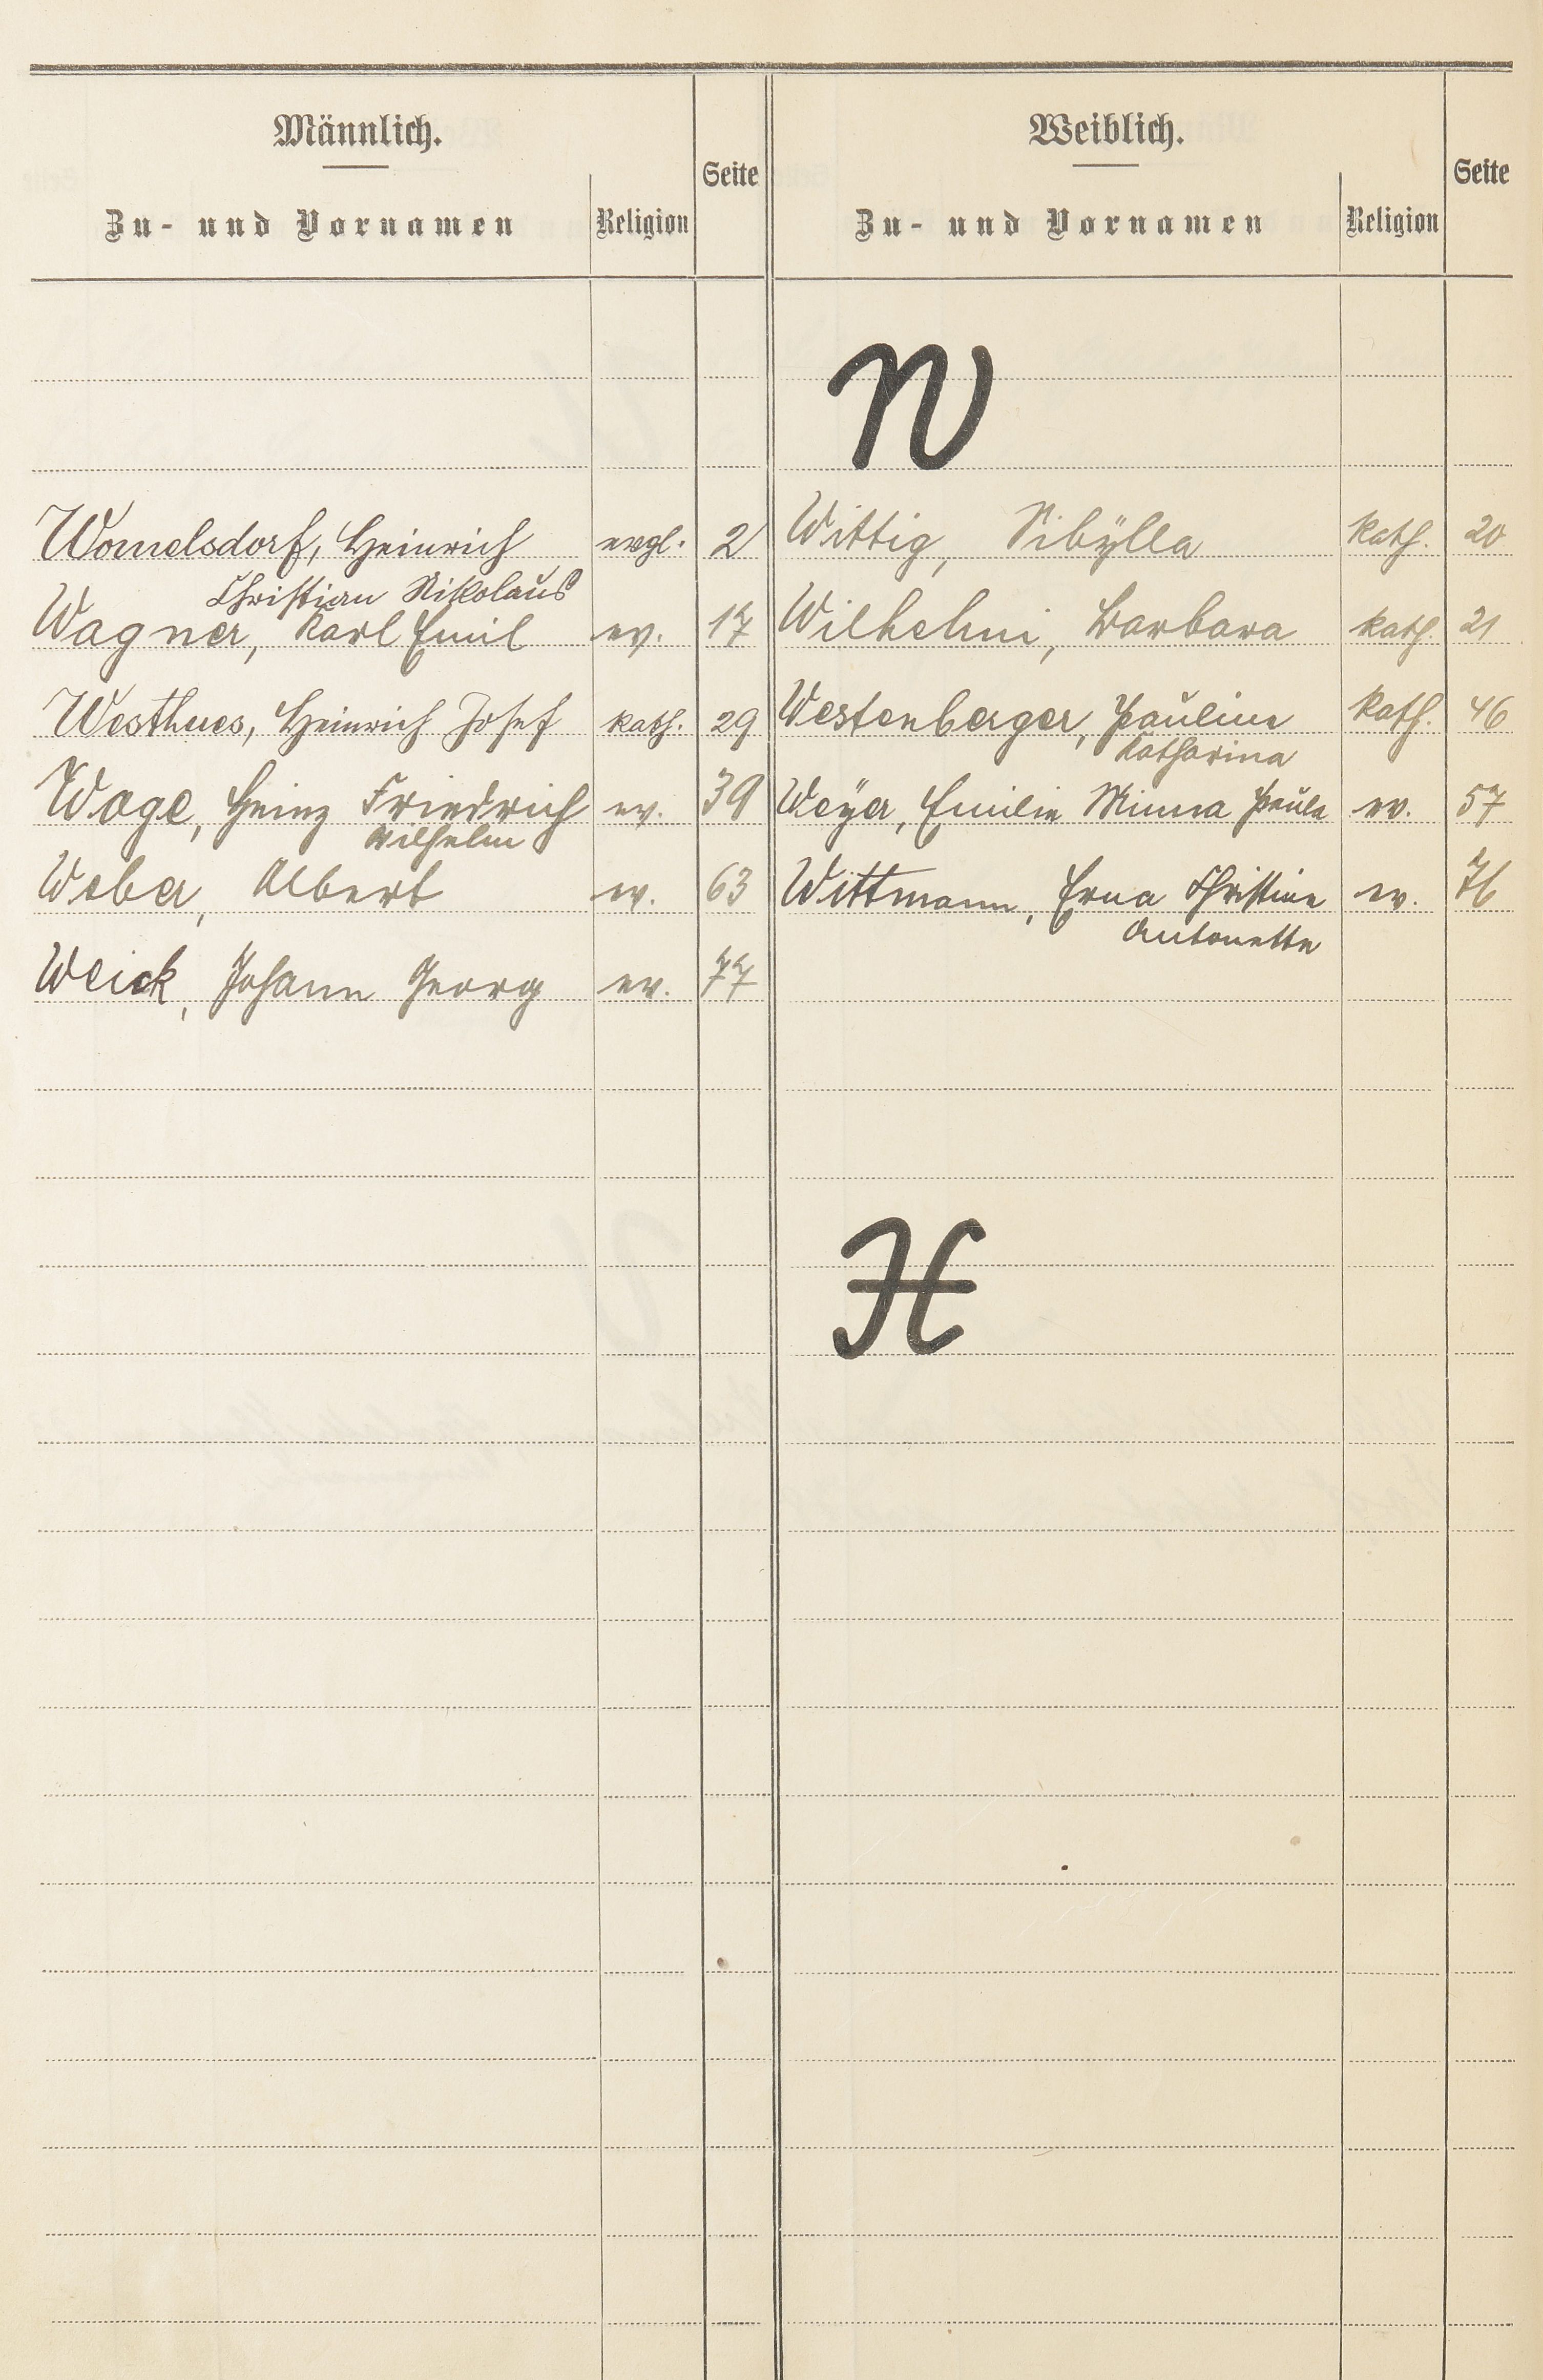 Männlich.
Zu- und Vornamen
Religion
Seite
Weiblich.
Zu- und Vornamen
Religion
Seite
W
Womelsdorf, Heinrich evgl. 2
Christian Nikolaus
Wagner, Karl Emil ev. 17
Westhues, Heinrich Josef kath. 29
Wage, Heinz Friedrich ev. 39
Wilhelm
Weber, Albert ev. 63
Weick, Johann Georg ev. 77
Wittig, Sibÿlla kath. 20
Wilhelmi, Barbara kath. 21
Westenberger, Pauline kath. 46
Katharina
Weÿer, Emilie Minna Paula ev. 57
Wittmann, Erna Christine ev. 76
Antonette
X